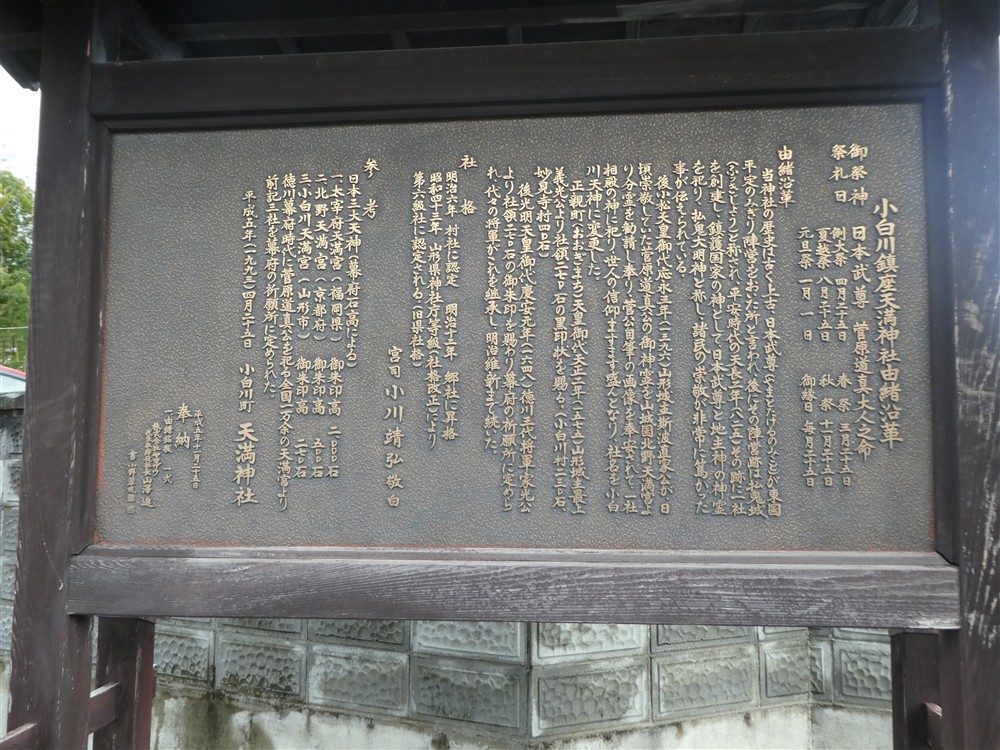 小白川鎮座天満神社由緒沿革
御祭神 日本武尊 菅原道真大人之命
祭礼日 例大祭 四月二十五日 春祭 三月二十五日
夏越祭 八月二十五日 秋祭 十一月二十五日
元旦祭 一月一日 御縁日 毎月二十五日
由緒沿革
当神社の歴史は古く上古、日本武尊(やまとたけるのみこと)が東国
平定のみぎり陣営をおこした所と言われ、後にその陣営跡を払鬼城
(ふっきじょう)と称され、平安時代の天長二年(八二五)その跡に一社
を創建し、鎮護国家の神として日本武尊と地主神の神霊
を祀り、払鬼大明神と称し、諸民の崇敬が非常に篤かった
事が伝えられている。
後小松天皇御代応永三年(一三九六)山形城主斯波直家公が、日
頃崇敬していた菅原道真公の御神霊を山城国北野天満宮よ
り分霊を勧請し奉り、菅公自筆の画像を奉安されて、一社
相殿の神に祀りて世人の信仰ますます盛んとなり、社名を小白
川天神に変更した。
正親町(おおぎまち)天皇御代天正二年(一五七三)山形城主最上
義光公より社領二七〇石の黒印状を賜る。(小白川村二三〇石、
妙見寺村四〇石)
後光明天皇御代慶安元年(一六四八)徳川三代将軍家光公
より社領二七〇石の御朱印を賜わり幕府の祈願所に定めら
れ、代々の将軍がこれを継承し、明治維新まで続いた。
社格
明治六年 村社に認定 明治十二年 郷社に昇格
昭和四十三年 山形県神社庁等級(社格改正)により
第六級社に認定される(旧県社格)
宮司 小川靖弘 敬白
参考
日本三大天神(幕府石高による)
一、太宰府天満宮(福岡県) 御朱印高 二〇〇〇石
二、北野天満宮(京都府) 御朱印高 五〇〇石
三、小白川天満宮(山形市) 御朱印高 二七〇石
徳川幕府時に菅原道真公を祀る全国一万余の天満宮より
前記三社を幕府の祈願所に定められた。
平成五年(一九九三)四月二十五日 小白川町 天満神社
平成五年十二月二十五日
奉納
一、由緒銘板 一式